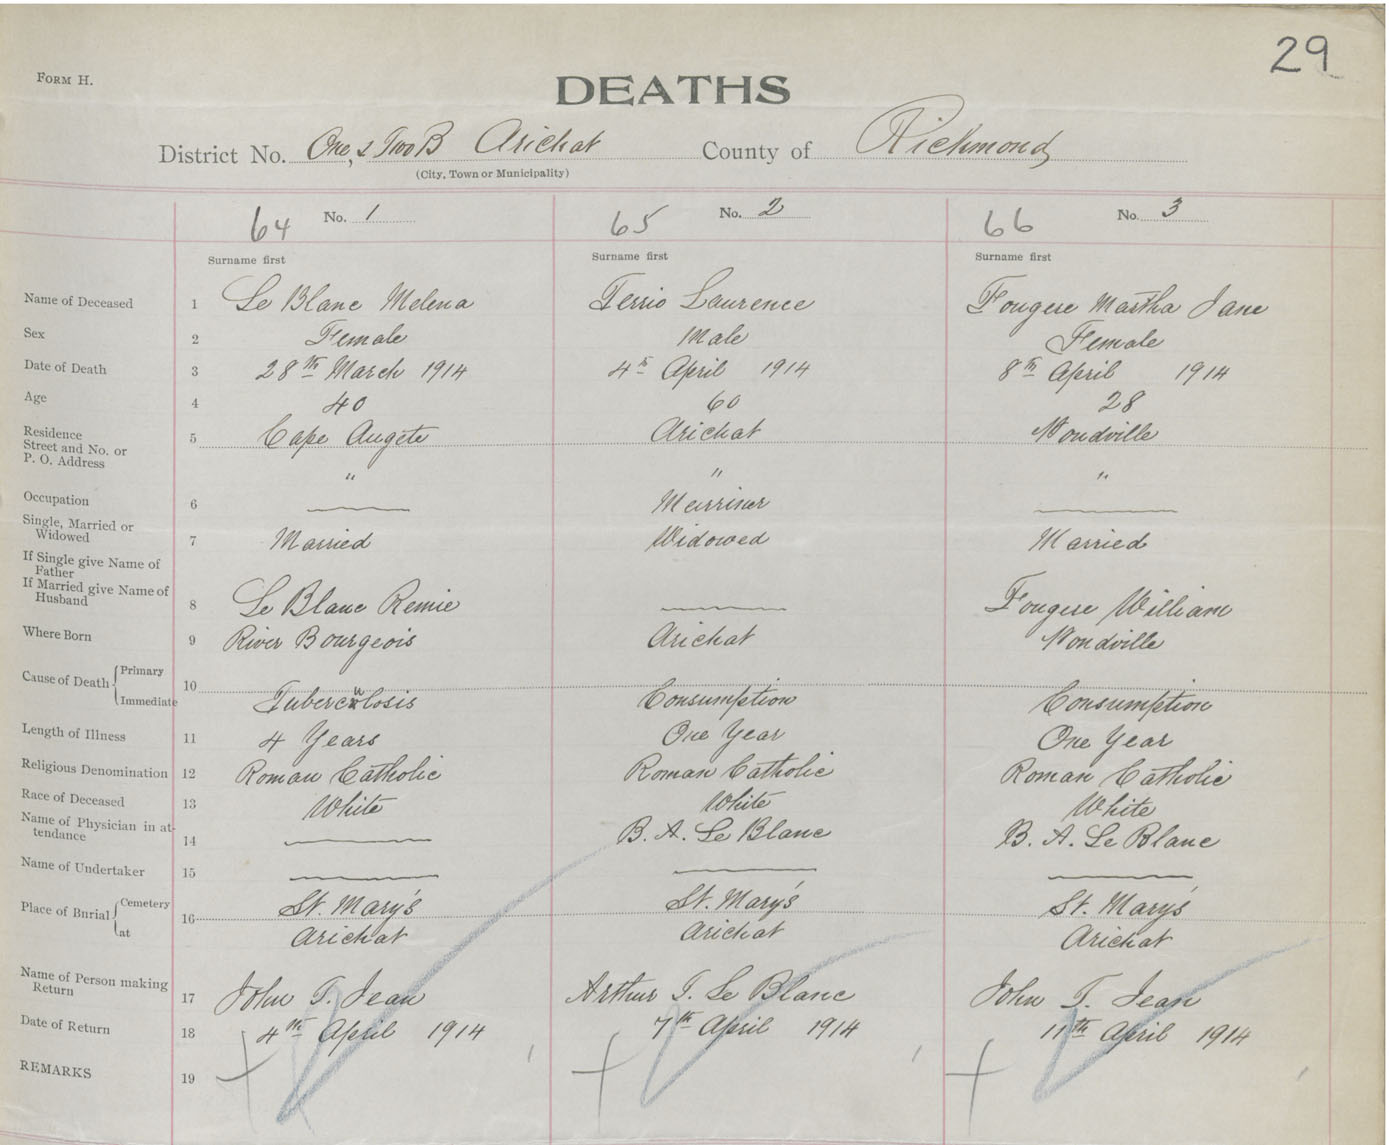 29
FORM H.
DEATHS
District No. One, & Two B Arichat County of Richmond
(City, Town or Municipality)
64 No. 1 65 No. 2 66 No. 3
Surname first Surname first Surname first
Name of Deceased 1 Le Blanc Melena Terrio Laurence Fougere Martha Jane
Sex 2 Female Male Female
Date of Death 3 28th March 1914 4th April 1914 8th April 1914
Age 4 40 60 28
Residence
Street and No. or 5 Cape Augete Arichat Noudville
P. O. Address
" " "
Occupation 6 Merriner
Single, Married or
Widowed 7 Married Widowed Married
If Single give Name of
Father
If Married give Name of
Husband 8 Le Blanc Remie Fougere William
Where Born 9 River Bourgeois Arichat Noudville
Cause of Death { Primary 10
Immediate Tuberculosis Consumption Consumption
Length of Illness 11 4 Years One Year One Year
Religious Denomination 12 Roman Catholic Roman Catholic Roman Catholic
Race of Deceased 13 White White White
Name of Physician in at-
tendance 14 B. A. Le Blanc B. A. Le Blanc
Name of Undertaker 15
Place of Burial { Cemetery 16 St. Mary's St. Mary's St. Mary's
at Arichat Arichat Arichat
Name of Person making
Return 17 John T. Jean Arthur T. Le Blanc John T. Jean
Date of Return 18 4th April 1914 7th April 1914 11th April 1914
REMARKS 19